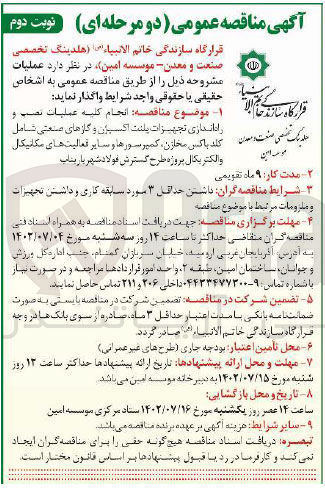 آگهی مناقصه عمومی (دو مرحله‌ای)
نوبت دوم
قرارگاه سازندگی خاتم الانبیاء(ص) (هلدینگ تخصصی
صنعت و معدن- موسسه امین)، در نظر دارد عملیات
مشروحه ذیل را از طریق مناقصه عمومی به اشخاص
حقیقی یا حقوقی واجد شرایط واگذار نماید:
۱- موضوع مناقصه: انجام کلیه عملیات نصب و
راه‌اندازی تجهیزات پلنت اکسیژن و گازهای صنعتی شامل
کلد باکس مخازن، کمپرسورها و سایر فعالیت‌های مکانیکال
والکتریکال پروژه طرح گسترش فولاد شهریار بناب
قرارگاه سازندگی خاتم الانبیاء
هلدینگ تخصصی صنعت و معدن
موسسه امین
۲- مدت کار: ۹ ماه تقویمی
۳- شرایط مناقصه گران: داشتن حداقل ۳ مورد سابقه کاری و داشتن تجهیزات
و ملزومات مرتبط با موضوع مناقصه
۴- مهلت برگزاری مناقصه: جهت دریافت اسناد مناقصه به همراه اسناد فنی
مناقصه گران متقاضی حداکثر تا ساعت ۱۴ روز سه‌شنبه مورخ ۱۴۰۲/۰۷/۰۴
به آدرس: آذربایجان غربی ارومیه، خیابان سربازان گمنام، جنب اداره کل ورزش
و جوانان، ساختمان امین، طبقه ۲، واحد امور قراردادها مراجعه و در صورت نیاز
با شماره تماس: ۹-۰۴۴۳۳۴۷۷۳۰۰ داخلی ۲۰۶ و ۲۱۱ تماس حاصل نمایند.
۵- تضمین شرکت در مناقصه: تضمین شرکت در مناقصه بایستی به صورت
ضمانت‌نامه بانکی با مدت اعتبار حداقل ۳ ماه، صادره از سوی بانک‌ها در وجه
قرارگاه سازندگی خاتم الانبیاء(ص) صادر گردد.
۶- محل تأمین اعتبار: بودجه جاری (طرح‌های غیر عمرانی)
۷- مهلت و محل ارائه پیشنهادها: تاریخ ارائه پیشنهادها حداکثر ساعت ۱۳ روز
شنبه مورخ ۱۴۰۲/۰۷/۱۵ به دبیرخانه موسسه امین می‌باشد.
۸- تاریخ و محل بازگشایی:
ساعت ۱۴ عصر روز یکشنبه مورخ ۱۴۰۲/۰۷/۱۶ ستاد مرکزی موسسه امین
۹- سایر شرایط: هزینه آگهی بر عهده برنده مناقصه می‌باشد.
تبصره: دریافت اسناد مناقصه هیچ‌گونه حقی را برای مناقصه‌گران ایجاد
نمی‌کند و کارفرما در رد یا قبول پیشنهادها بر اساس قانون مختار است.